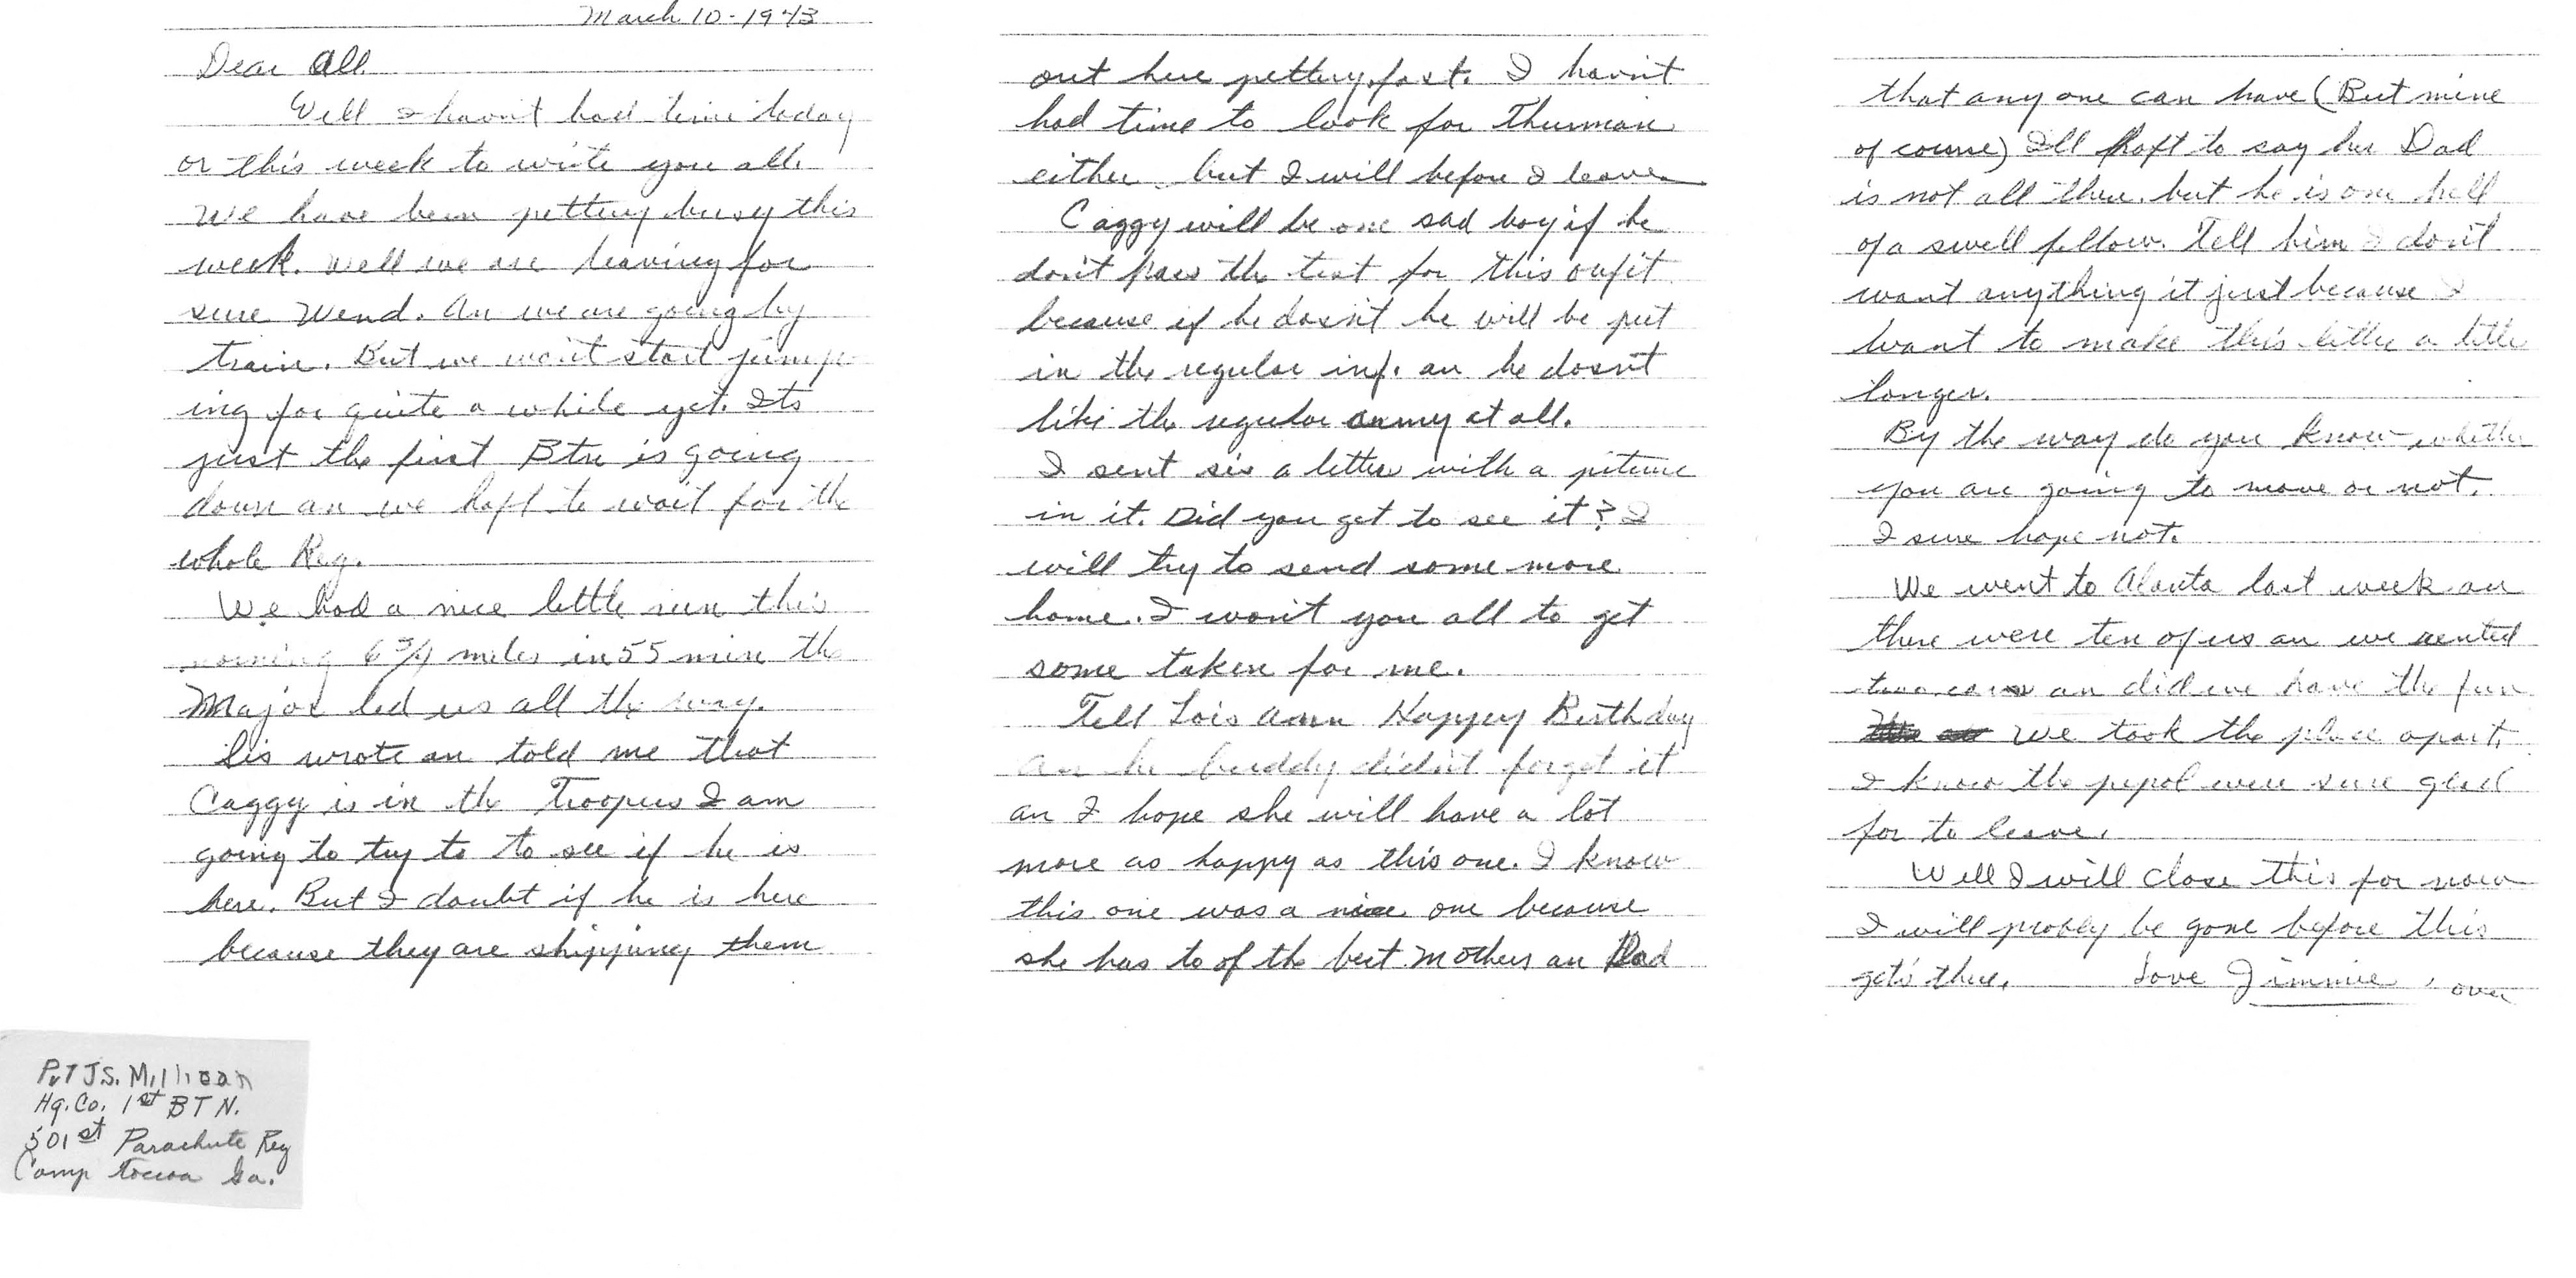 March 10-1943
Dear All
Well I havn't had time today
or this week to write you all.
We have been pettuy busy this
week. Well we are leaving for
sure Wend. An we are going by
train. But we won't start jump-
ing for quite a while yet. Its
just the first Btn is going
down an we haft to wait for the
whole Reg.
We had a nice little run this
morning 6 3/4 miles in 55 min the
Major led us all the way.
Sis wrote an told me that
Caggy is in the Troopers I am
going to try to to see if he is
here. But I doubt if he is here
because they are shipping them
out here pettuy fast. I havn't
had time to look for Thurman
either but I will before I leave.
Caggy will be one sad boy if he
don't pass the test for this oufit
because if he dosn't he will be put
in the regular inf. an he dosn't
like the regular army at all.
I sent sis a letter with a piture
in it. Did you get to see it? I
will try to send some more
home. I won't you all to get
some taken for me.
Tell Lois Ann Happy Birthday
An he buddy didn't forget it
an I hope she will have a lot
more as happy as this one. I know
this one was a nice one because
she has to of the best Mothers an Dad
that any one can have (But mine
of course) I'll haft to say her Dad
is not all there. but he is one hell
of a swell fellow. Tell him I don't
want anything it just because I
want to make this letter a little
longer.
By the way do you know whether
you are going to move or not.
I sure hope not.
We went to Alanta last week an
there were ten of us an we rented
two cars an did we have the fun
We took the place apart.
I know the pepol were sure glad
for to leave.
Well I will close this for now
I will probly be gone before this
gets there. Love Jimmie over
Pvt J.S. Millican
Hq. Co. 1st BTN.
501st Parachute Reg
Camp Toccoa Ga.